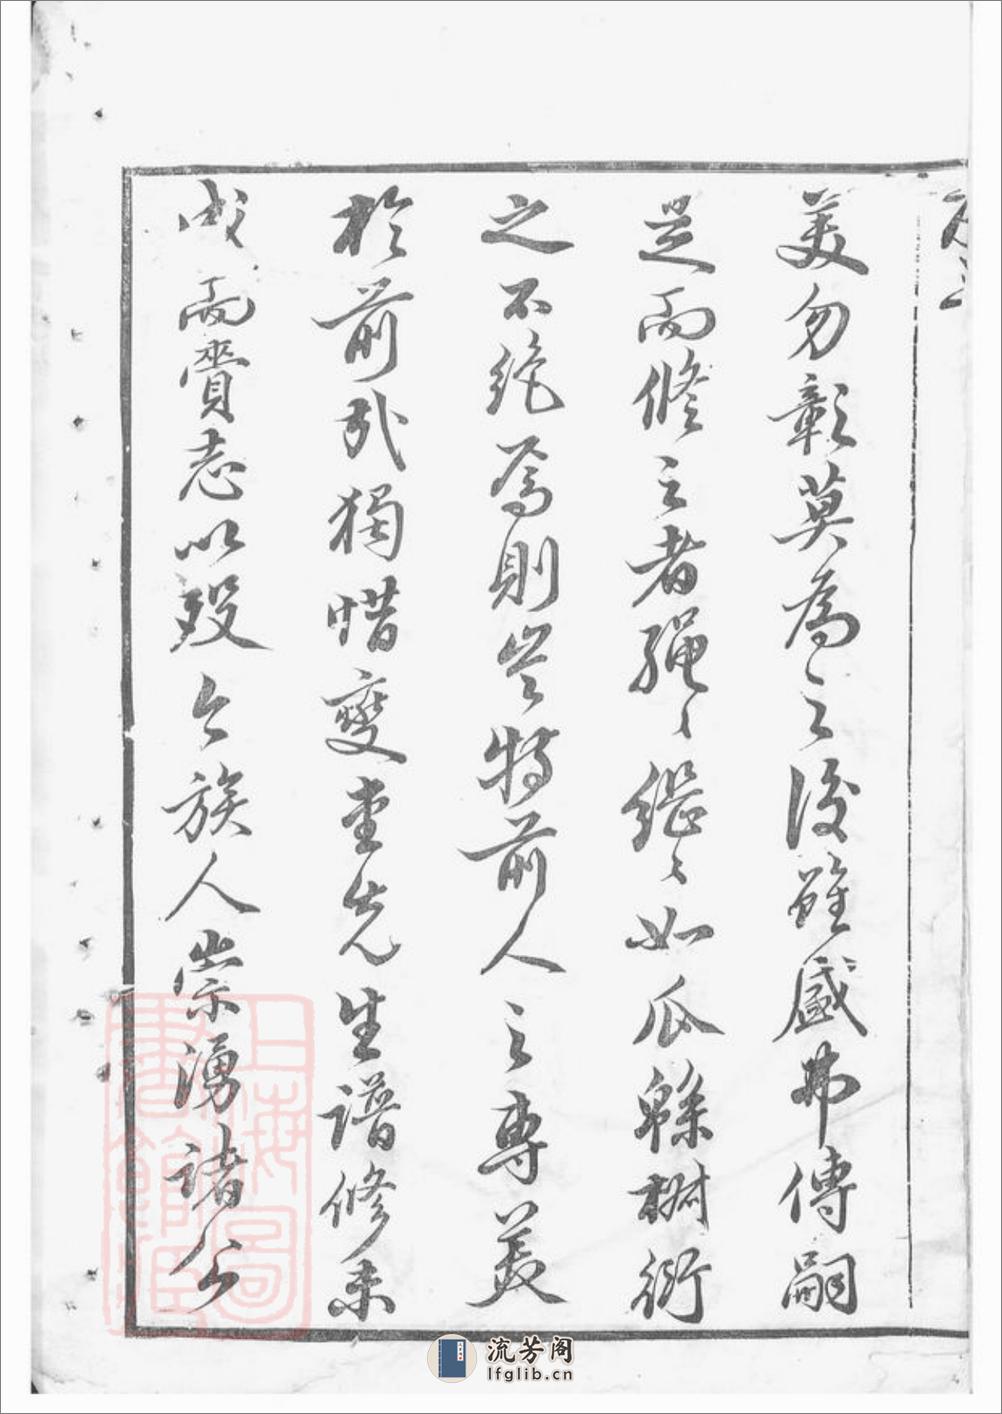 美勿彰莫為之後雖盛弗傳嗣
是而修之者繩〻繼〻如瓜緜椒衍
之不絕焉則豈特前人之專美
於前哉獨惜變堂先生譜修未
成而賫志以歿今族人崇湧諸公
上海圖書館藏
流芳阁
lfglib.cn